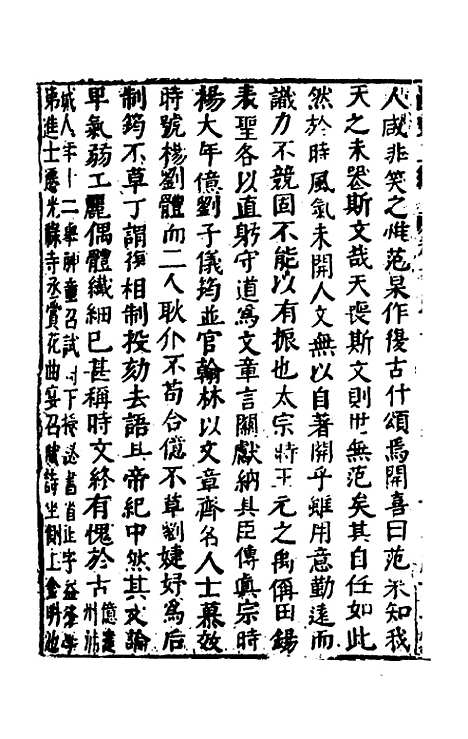 人咸非笑之惟范杲作復古什頌焉開喜曰范杲知我
天之未喪斯文哉天喪斯文則世無范矣其自任如此
然於時風氣未開人文無以自著開乎雖用意勤遠而
識力不競固不能以有振也太宗時王元之禹偁田錫
表聖各以直躬守道為文章言關獻納具臣傳眞宗時
楊大年億劉子儀筠並官翰林以文章齊名人士慕效
時號楊劉體而二人耿介不苟合億不草劉婕妤為后
制筠不草丁謂復相制投劾去語具帝紀中然其文論
卑氣弱工麗偶體纖細已甚稱時文終有愧於古
億建州浦
城人年十二舉神童召試下授祕書省正字益淳學
第進士歷光祿寺丞賞花曲宴召賦詩坐側上金明池